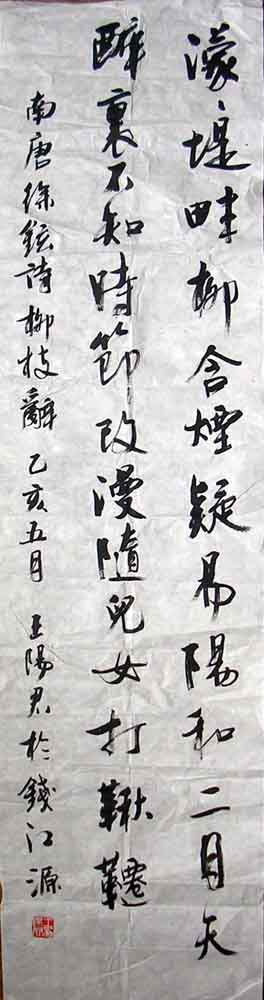 濛〻堤畔柳含煙疑是陽和二月天
醉裏不知時節改漫隨兒女打鞦韆
南唐徐鉉詩柳枝辭 乙亥五月 王陽君於錢江源